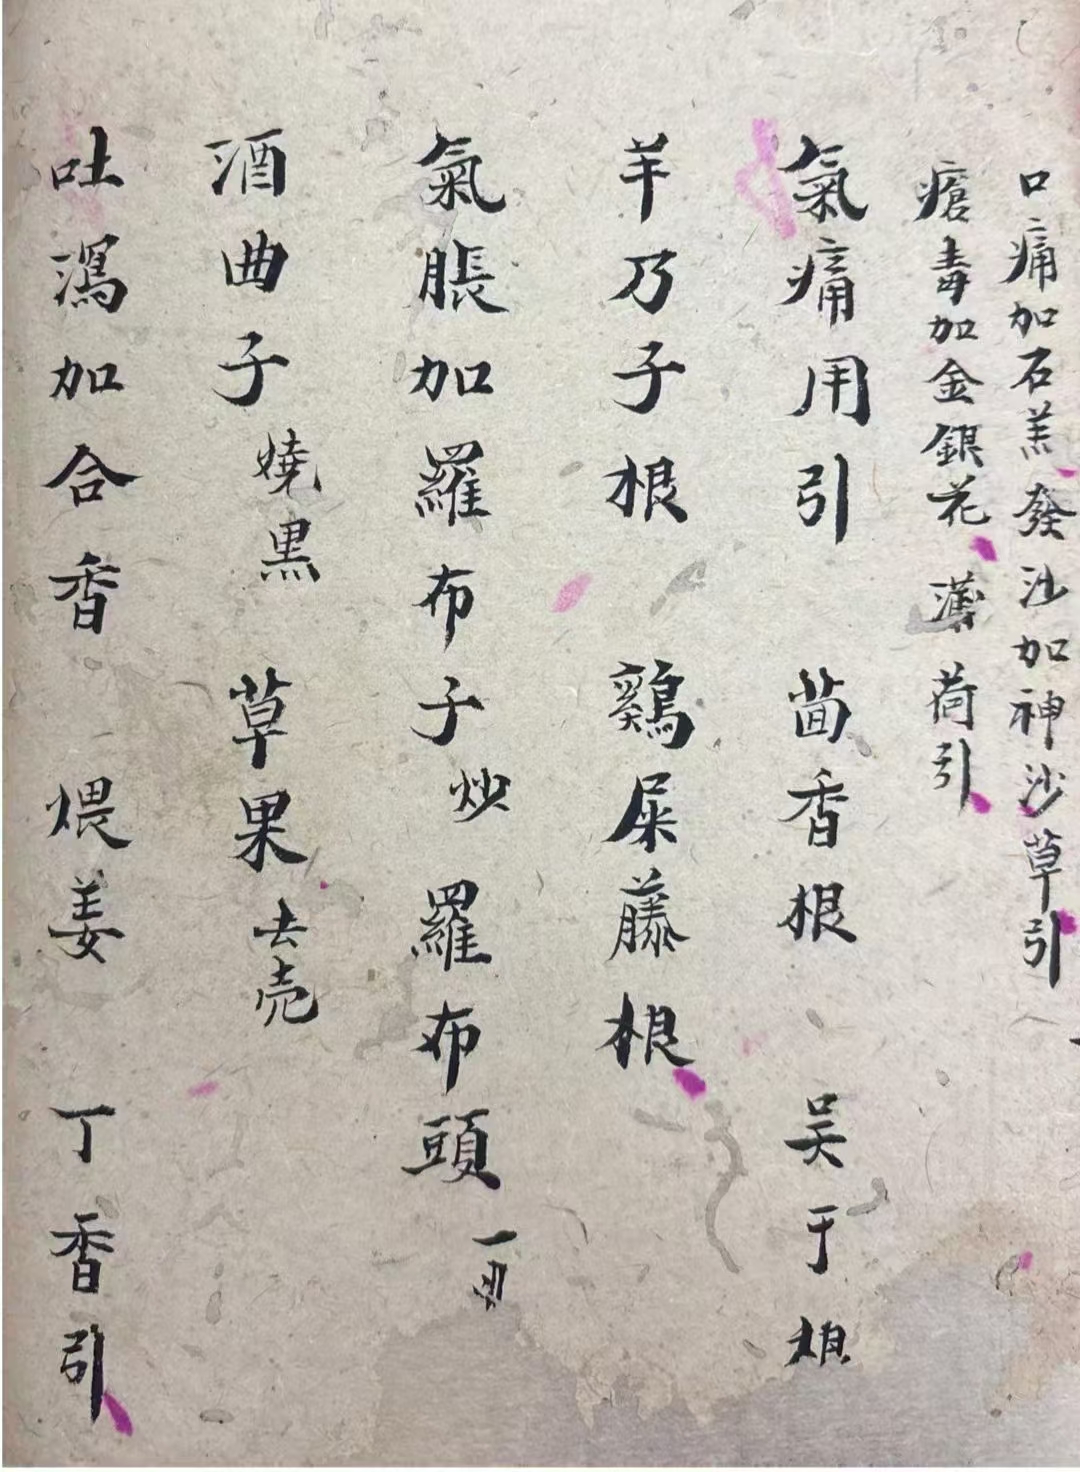 口痛加石羔發沙加神沙草引
瘡毒加金銀花 薄荷引
氣痛用引 茴香根 吴于根
羊乃子根 鷄屎藤根
氣脹加羅布子炒 羅布頭一
酒曲子燒黒 草果去壳
吐瀉加合香 煨姜 丁香引